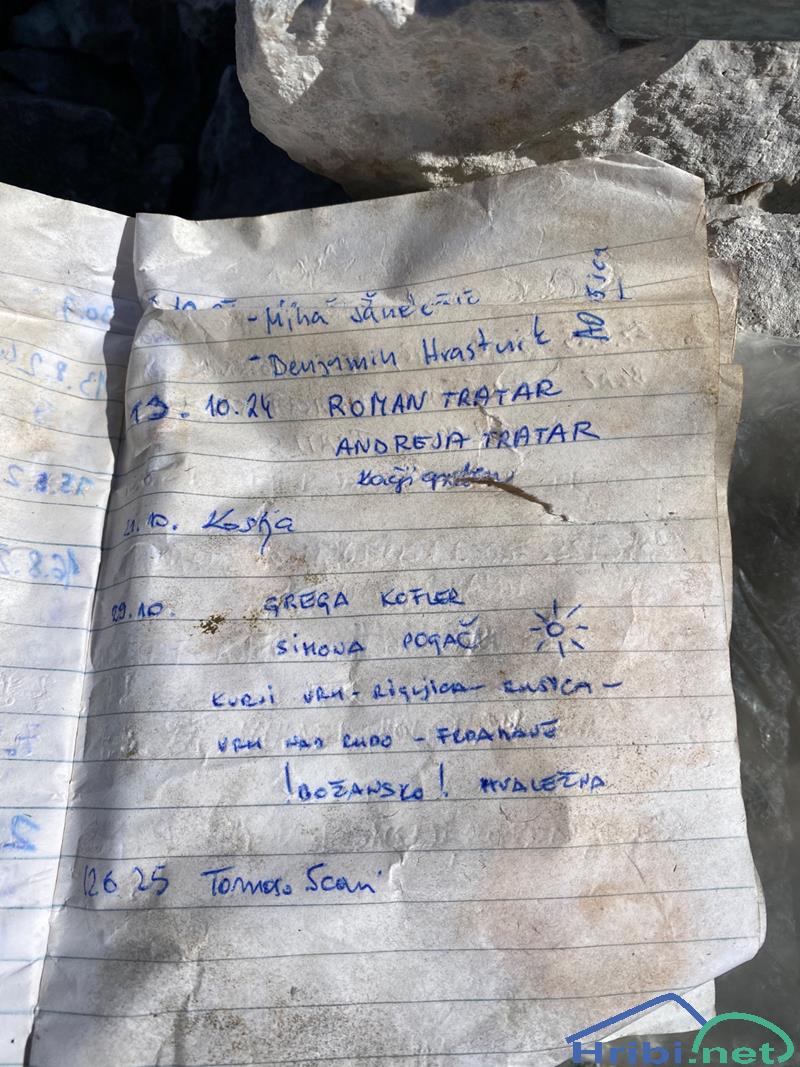 - Miha
- Benjamin Hrastnik AO
13.10.24 ROMAN TRATAR
ANDREJA TRATAR
21.10. Kostja
29.10. GREGA KOFLER
SIMONA POGAČ
KURJI VRH - RIGLJICA - RUŠICA -
VRH NAD RUDO -
! BOŽANSKO ! HVALEŽNA
126 25 Tomaso Scari
Hribi.net